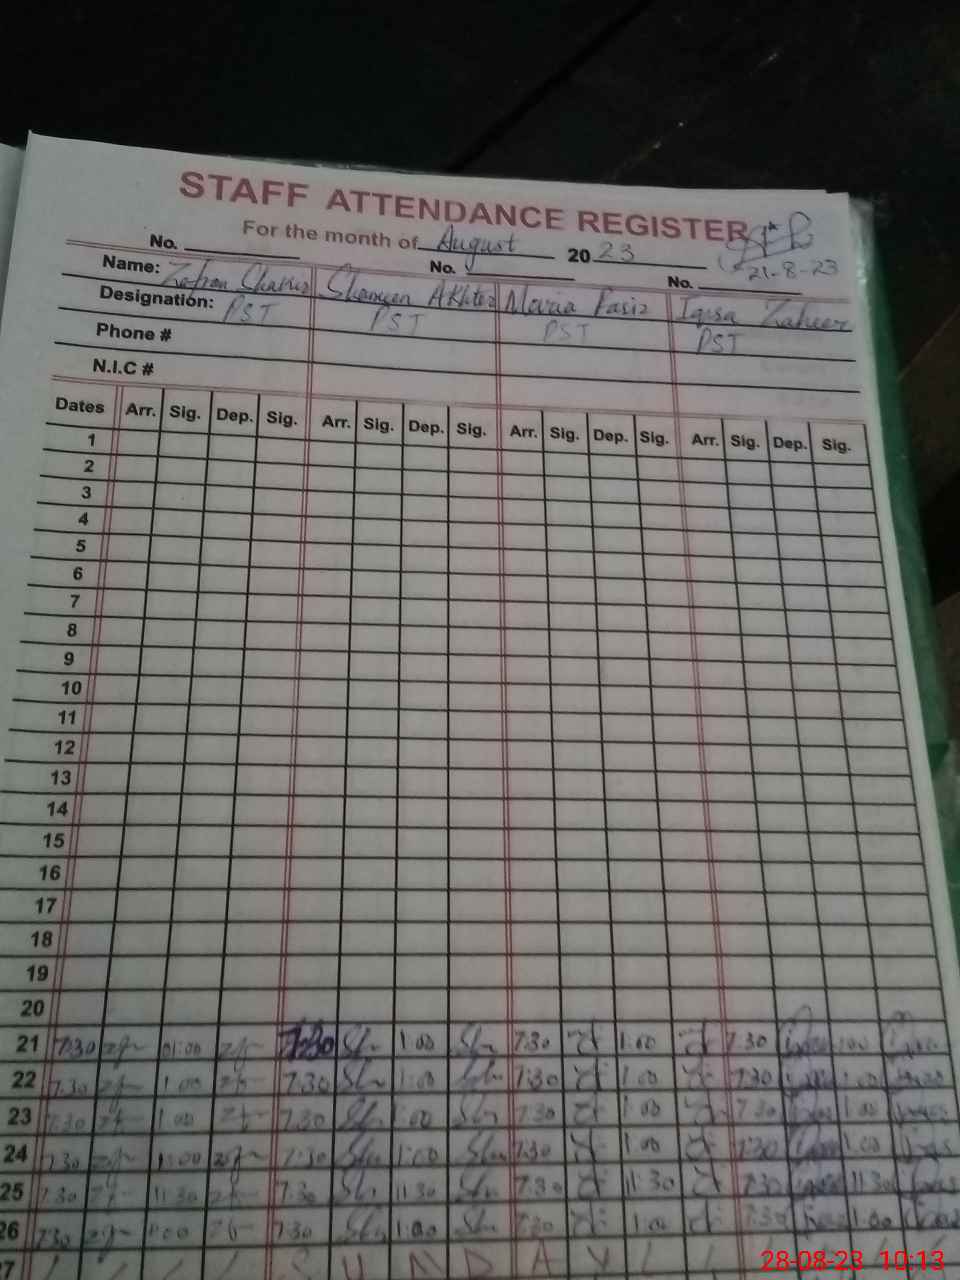 STAFF ATTENDANCE REGISTER
For the month of August 2023
21-8-23
No. No. No.
Name: Shameen Akhter Iqrsa Zaheer
Designation: PST PST PST PST
Phone #
N.I.C #
Dates Arr. Sig. Dep. Sig. Arr. Sig. Dep. Sig. Arr. Sig. Dep. Sig. Arr. Sig. Dep. Sig.
1
2
3
4
5
6
7
8
9
10
11
12
13
14
15
16
17
18
19
20
21 7:30 01:00 7:30 1:00 7:30 1:00 7:30 1:00
22 7:30 1:00 7:30 1:00 7:30 1:00 7:30 1:00
23 7:30 1:00 7:30 1:00 7:30 1:00 7:30 1:00
24 7:30 1:00 7:30 1:00 7:30 1:00 7:30 1:00
25 7:30 11:30 7:30 11:30 7:30 11:30 7:30 11:30
26 7:30 1:00 7:30 1:00 7:30 1:00 7:30 1:00
27 SUNDAY
28-08-23 10:13